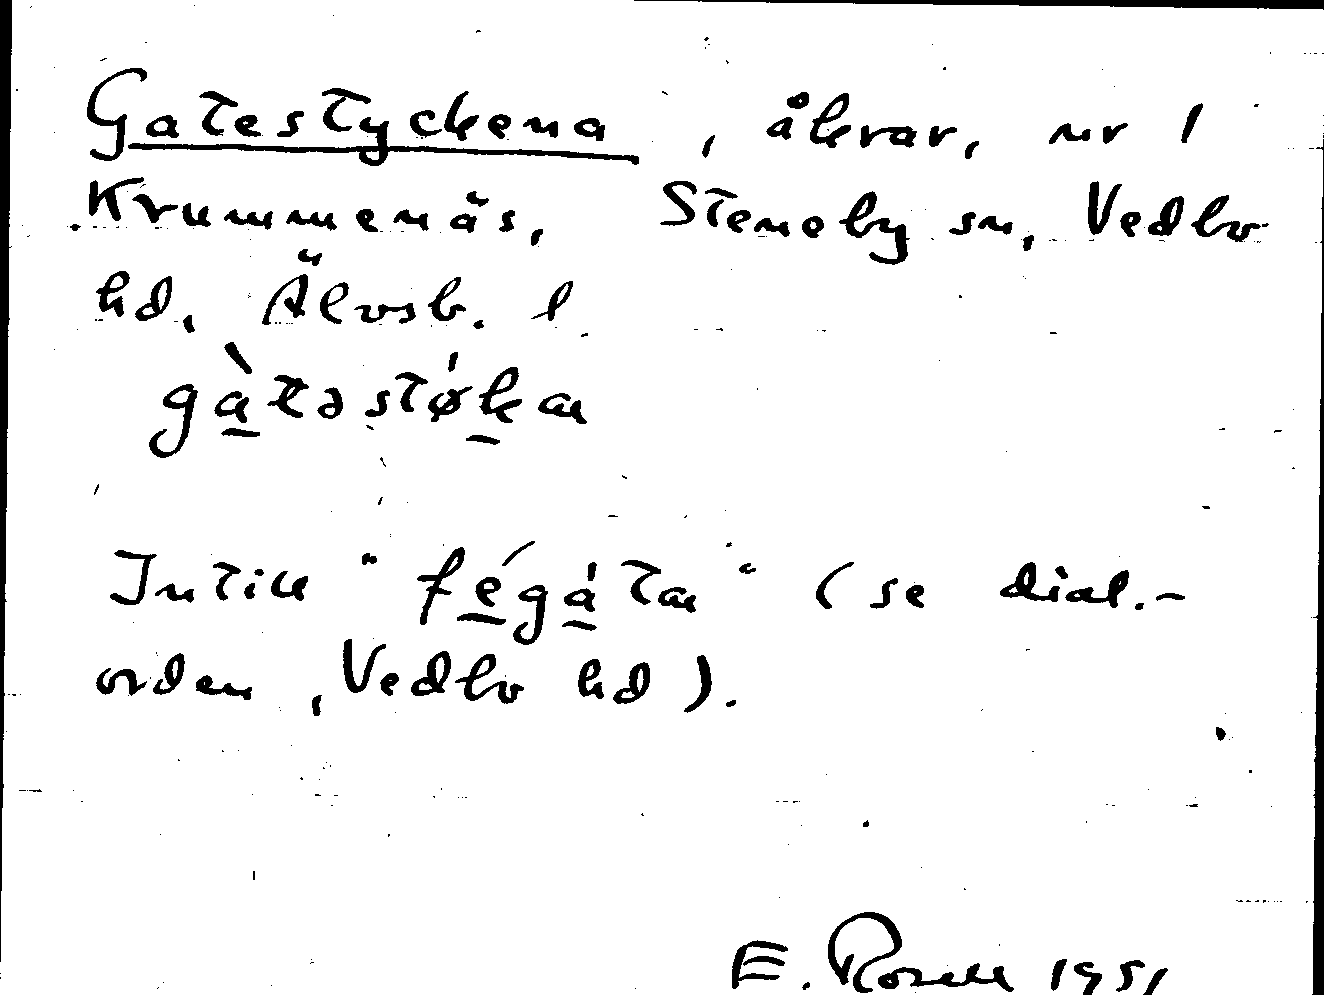 Gatestyckena, åkrar, nr 1
Krummenäs, Steneby sn, Vedbo
hd, Älvsb. l
gàtəstø̀kɑ
Intill "fégátɑ" (se dial.-
orden, Vedbo hd).
E. Rosell 1951